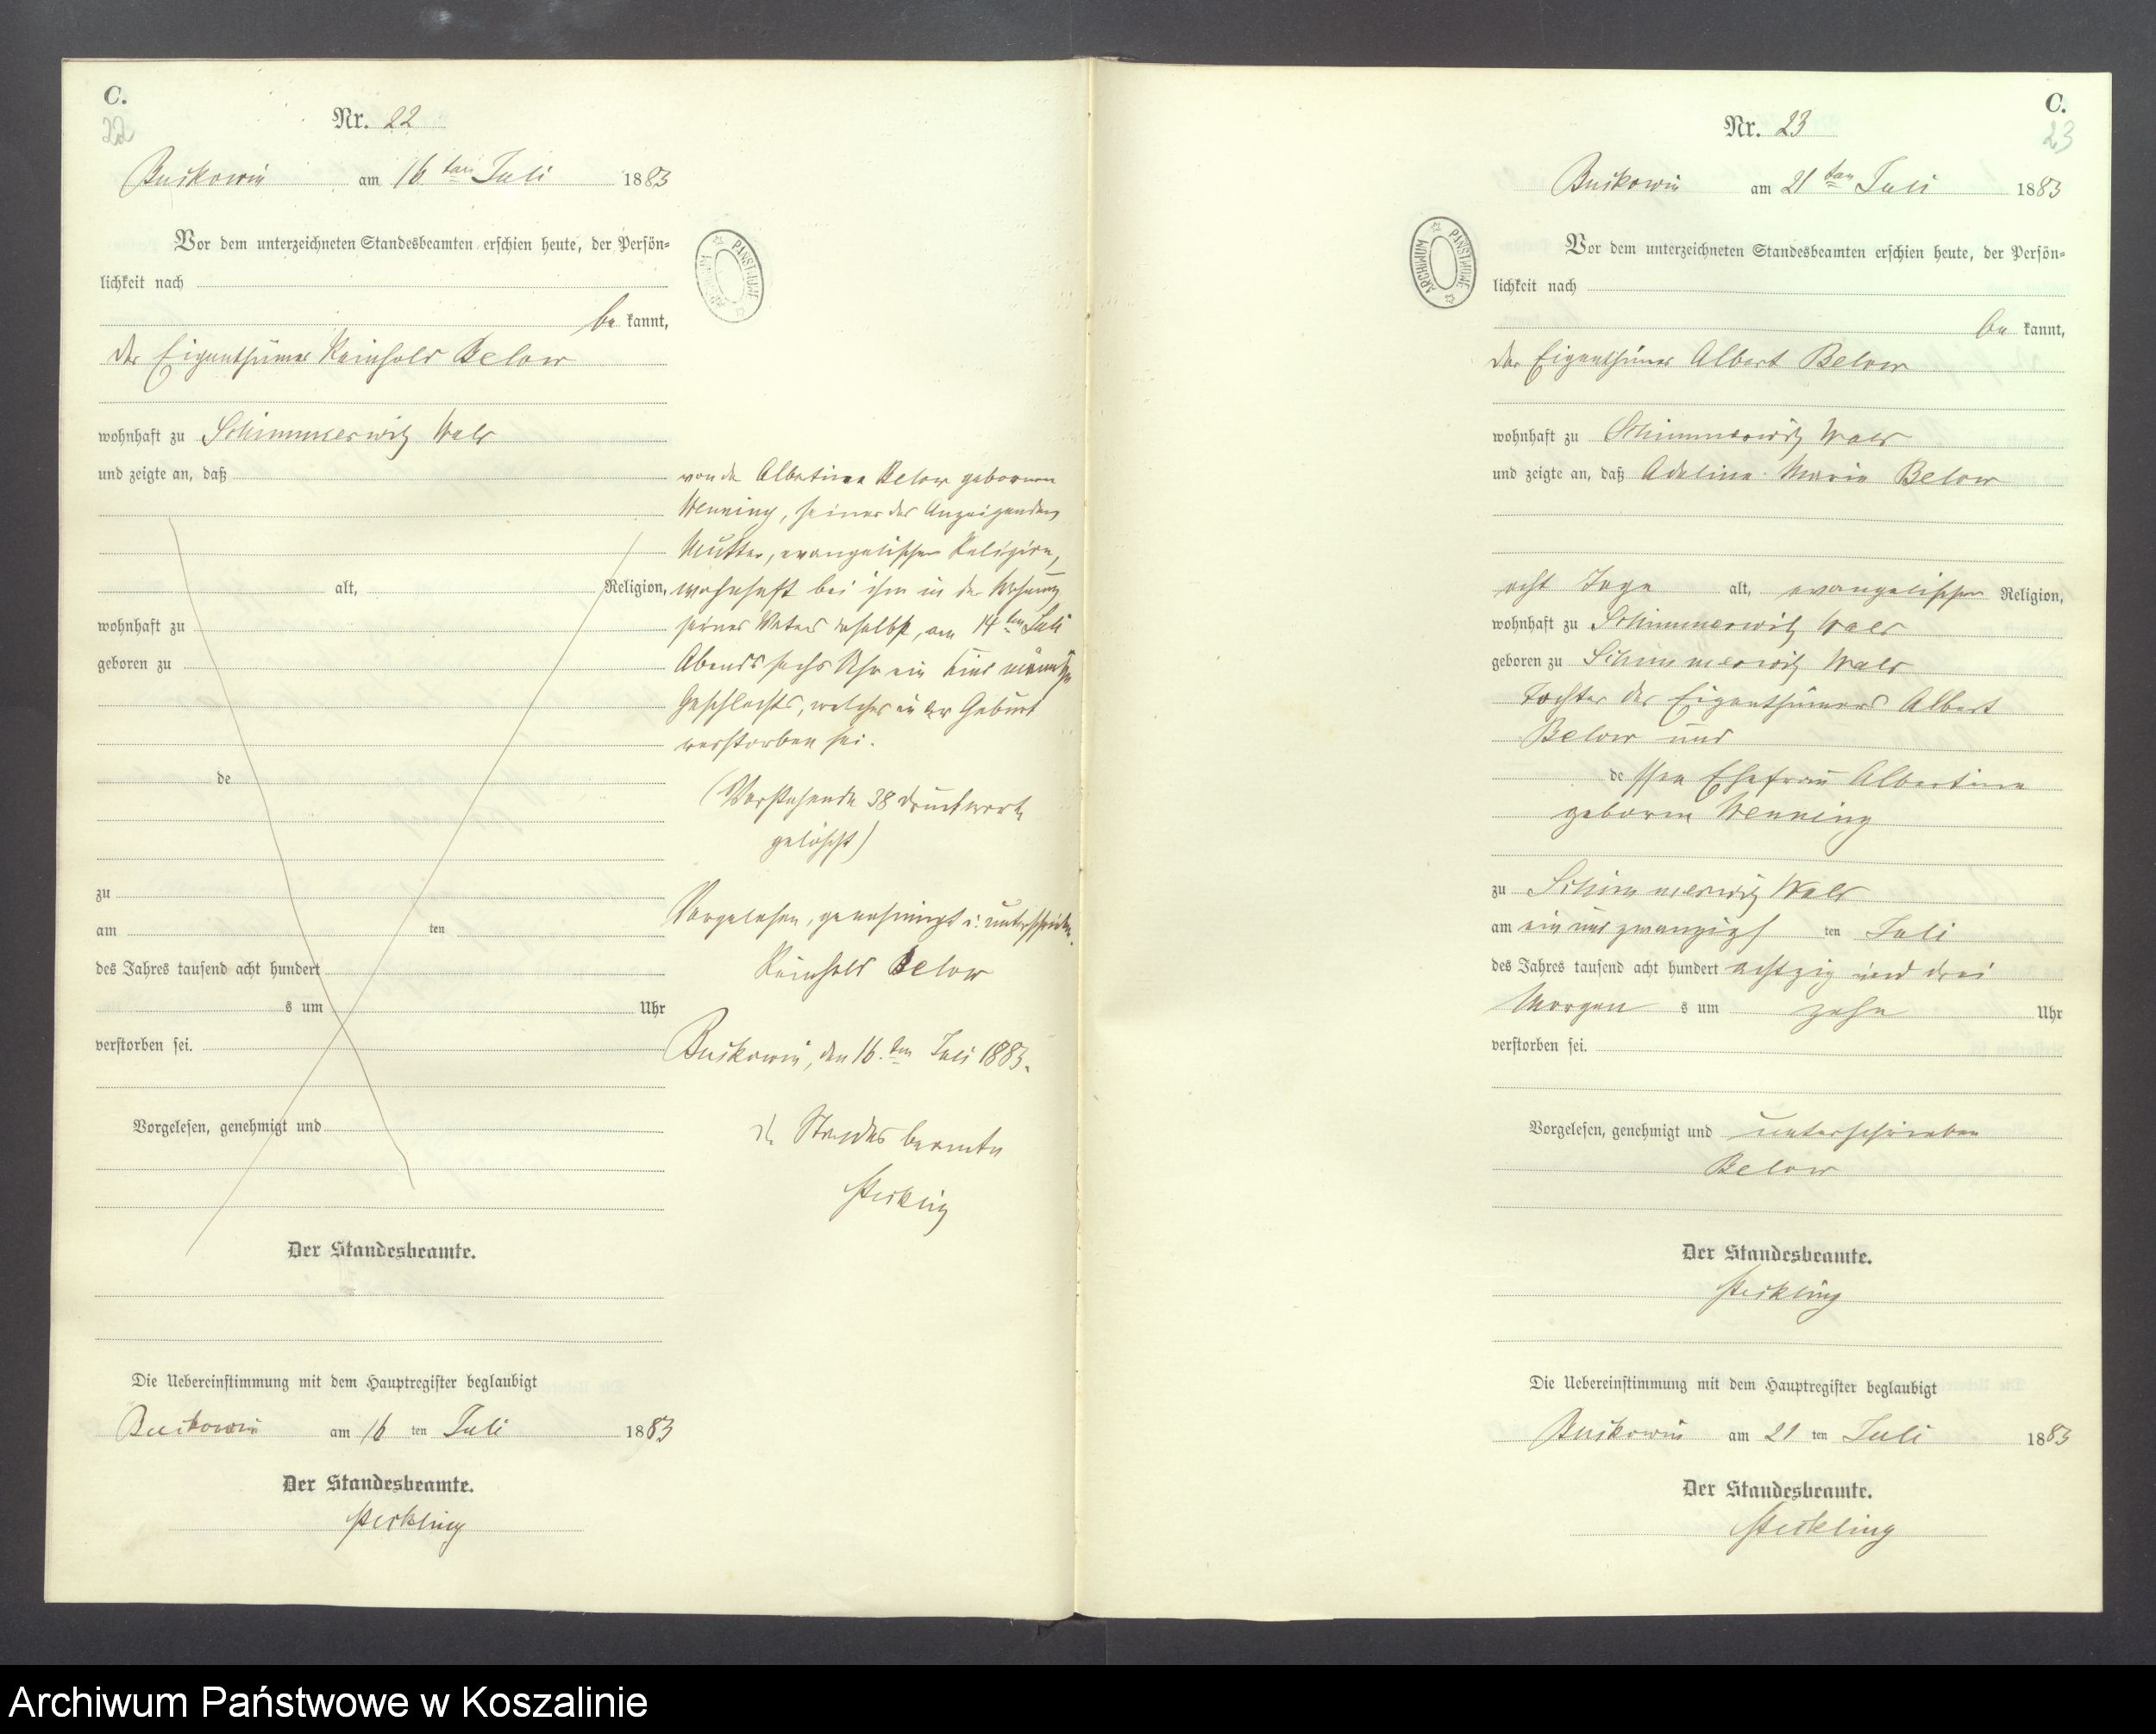 C.
22
Nr. 22
Buckowin am 16ten Juli 1883
Vor dem unterzeichneten Standesbeamten erschien heute, der Persön-
lichkeit nach
be kannt,
der Eigenthümer Reinhold Below
wohnhaft zu Schimmerwitz Wald
und zeigte an, daß
alt, Religion,
wohnhaft zu
geboren zu
de
zu
am ten
des Jahres tausend acht hundert
s um Uhr
verstorben sei.
Vorgelesen, genehmigt und
Der Standesbeamte.
Die Uebereinstimmung mit dem Hauptregister beglaubigt
Buckowin am 16 ten Juli 1883
Der Standesbeamte.
Steckling
PAŃSTWOWE ARCHIWUM
von der Albertine Below geborenen
Henning, seiner des Anzeigenden
Mutter, evangelischer Religion,
wohnhaft bei ihm in der Wohnung
seines Vaters daselbst, am 14ten Juli
Abends sechs Uhr ein Kind männlichen
Geschlechts, welches in der Geburt
verstorben sei.
(Vorstehende 38 Druckworte
gelöscht)
Vorgelesen, genehmigt u. unterschrieben.
Reinhold Below
Buckowin, den 16.ten Juli 1883.
Der Standesbeamte
Steckling
C.
23
Nr. 23
Buckowin am 21ten Juli 1883
PAŃSTWOWE ARCHIWUM
Vor dem unterzeichneten Standesbeamten erschien heute, der Persön-
lichkeit nach
be kannt,
der Eigenthümer Albert Below
wohnhaft zu Schimmerwitz Wald
und zeigte an, daß Adeline Marie Below
acht Tage alt, evangelischer Religion,
wohnhaft zu Schimmerwitz Wald
geboren zu Schimmerwitz Wald
Tochter des Eigenthümers Albert
Below und
de ssen Ehefrau Albertine
geborne Henning
zu Schimmerwitz Wald
am ein und zwanzigs ten Juli
des Jahres tausend acht hundert achtzig und drei
Morgen s um zehn Uhr
verstorben sei.
Vorgelesen, genehmigt und unterschrieben
Below
Der Standesbeamte.
Steckling
Die Uebereinstimmung mit dem Hauptregister beglaubigt
Buckowin am 21 ten Juli 1883
Der Standesbeamte.
Steckling
Archiwum Państwowe w Koszalinie